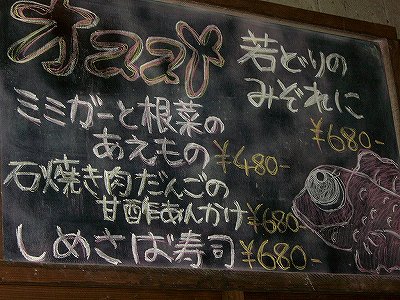 オススメ
若どりの
みぞれに
¥680-
ミミガーと根菜の
あえもの ¥480-
石焼き肉だんごの
甘酢あんかけ ¥680-
しめさば寿司 ¥680-